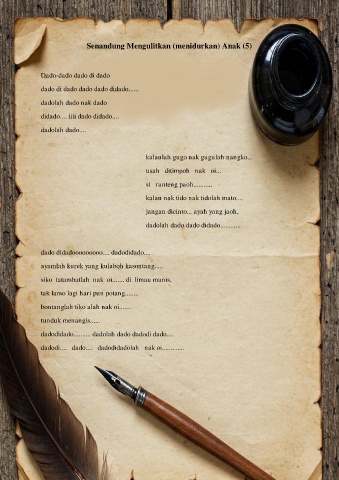 Senandung Mengulitkan (menidurkan) Anak (5)
Dado-dado dado di dado
dado di dado dado dado didado......
dadolah dado nak dado
didado.... iiii dado didado....
dadolah dado....
kalaulah gugo nak gugulah nangko..
usah ditimpoh nak oi...
si ranteng paoh...........
kalau nak tido nak tidolah mato....
jangan dicinto... ayah yang jaoh,
dadolah dado dado didado............
dado didadooooooooo.... dadodidado....
ayamlah kurek yang kulaboh kasontang....
siko tatambatlah nak oi....... di limau manis,
tak lamo lagi hari pun potang.......
bontanglah tiko alah nak oi.......
tunduk menangis.....
dadodidado......... dadolah dado dadodi dado....
dadodi.... dado.... dadodidadolah nak oi............